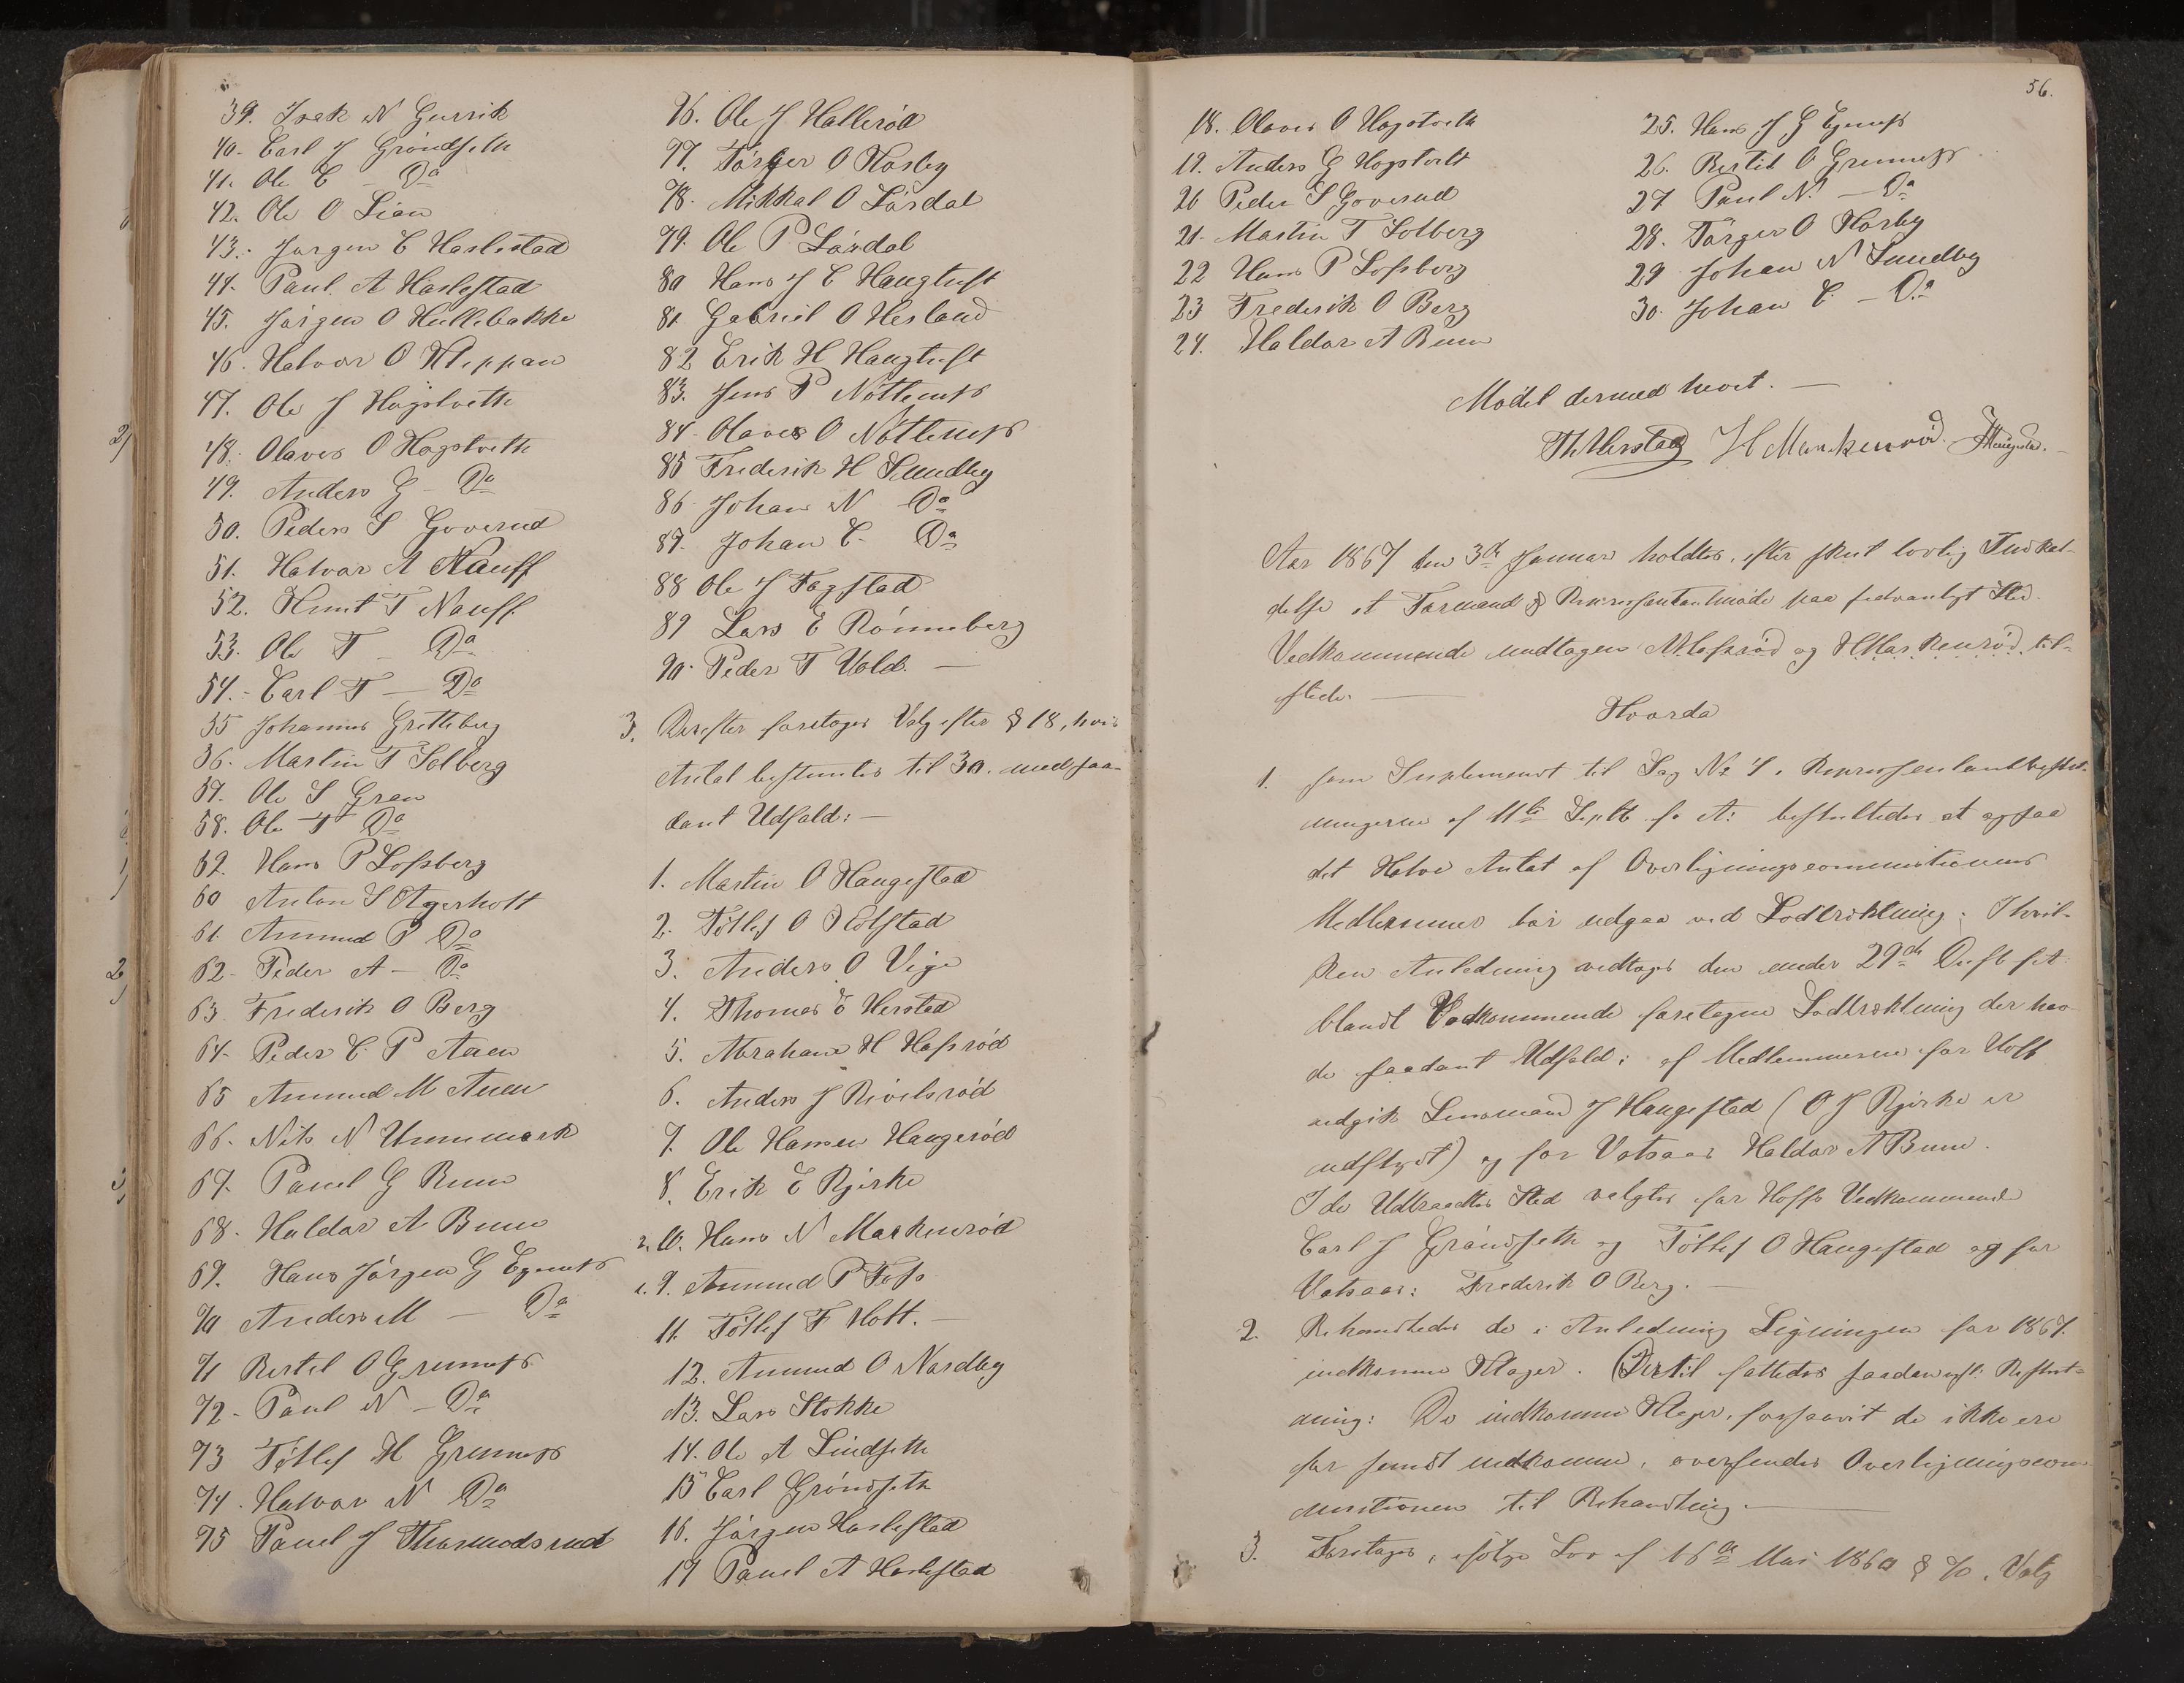 39. Isak N Gurrik
40. Carl J Gröndseth
41. Ole C – Do
42. Ole O Lian
43. Jørgen C Haslestad
44. Paul A Haslestad
45. Jørgen O Hullebakke
46. Halvor O Kleppan
47. Ole J Hagstveth
48. Olaves O Hagstveth
49. Anders G – Do
50. Peder S Goverud
51. Halvor A Nauff
52. Knut T Nauff
53. Ole T – Do
54. Carl T – Do
55 Johannes Gretteberg
56. Martin T Solberg
57. Ole S Gran
58. Ole T Do
59. Hans P Lofsberg
60 Anton S Agerholt
61. Amund P Do
62. Peder A – Do
63. Frederik O Berg
64. Peder C. P Aaen
65 Amund M Aaen
66. Nils N Unnemark
67. Paul G Buen
68. Haldor A Buen
69. Hans Jørgen G Egenæs
70 Anders M – Do
71 Bertel O Grennæs
72. Paul N – Do
73 Töllef H Grennæs
74. Halvor N Do
75 Paul J Thormodsrud
76. Ole J Hallerød
77. Törger O Hørsby
78. Mikkal O Lørdal
79. Ole P Lørdal
80 Hans J C Haugtuft
81 Gabriel O Hesland
82 Erik H Haugtuft
83. Jens P Nøtlenæs
84. Olaves O Nøtlenæs
85 Frederik H Sundby
86 Johan N Do
87. Johan C. Do
88 Ole J Fagstad
89 Lars E Rønneberg
90. Peder T Vold. –
3. Derefter foretoges Valg efter § 18, hvis
Antal bestemtes til 30. med saa-
dant Udfald: –
1. Martin O Haugestad
2. Töllef O Holstad
3. Anders O Vige
4. Thomas E Herstad
5. Abraham H Hafsrød
6. Anders J Revelsrød
7. Ole Hansen Haugerød
8. Erik E Bjerke
2. 10. Hans N Markenrød
1. 9. Amund P Fos
11. Töllef F Holt. –
12. Amund O Nordby
13. Lars Stokke
14. Ole A Lindseth
15 Carl Gröndseth
16. Jørgen Haslestad
17 Paul A Haslestad
56.
18. Olaves O Hagstveth
19. Anders G Hagstvedt
20 Peder S Goverud
21. Martin T Solberg
22 Hans P Lofsberg
23 Frederik O Berg
24. Haldor A Buen
25. Hans J G Egenæs
26. Bertel O Grennæs
27 Paul N. – Do
28. Törger O Hørsby
29 Johan N Sundby
30. Johan C. – Do
Mødet dermed hævet. –
Th Herstad H Markenrød. J Haugestad.
Aar 1867 den 3de Januar holdtes, efter skeet lovlig Indkal-
delse et Formand & Repræsentantmøde paa sedvanligt Sted.
Vedkommende undtagen A Hafsrød og H Markenrød til-
stede. –
Hvorda
1. som Suplement til Sag No 4, Repræsentantbeslut-
ningerne af 11te Septb. f. A: besluttedes at ogsaa
det Halve Antal af Overligningscommissionens
Medlemmer bør udgaa ved Lodtrækning; I hvil-
ken Anledning vedtoges den under 29de Decb sit.
blandt Vedkommende foretagne Lodtrækning der hav-
de saadant Udfald: af Medlemmerne for Hoff
udgik Lensmand J Haugestad (O J Bjerke er
udflyt) og for Vatsaas Haldor A Buen.
I de Udtraadtes Sted valgtes for Hoffs Vedkommende
Carl J Gröndseth og Töllef O Haugestad og for
Vatsaas: Frederik O Berg. –
2. Behandledes de i Anledning Ligningen for 1867.
indkomne Klager. Dertil fattedes saadan Beslut-
ning: De indkomne Klager, forsaavit de ikke ere
for seent indkomne, oversendes Overligningscom-
missionen til Behandling. –
3. Foretoges, ifølge Lov af 16de Mai 1860 § 70, Valg